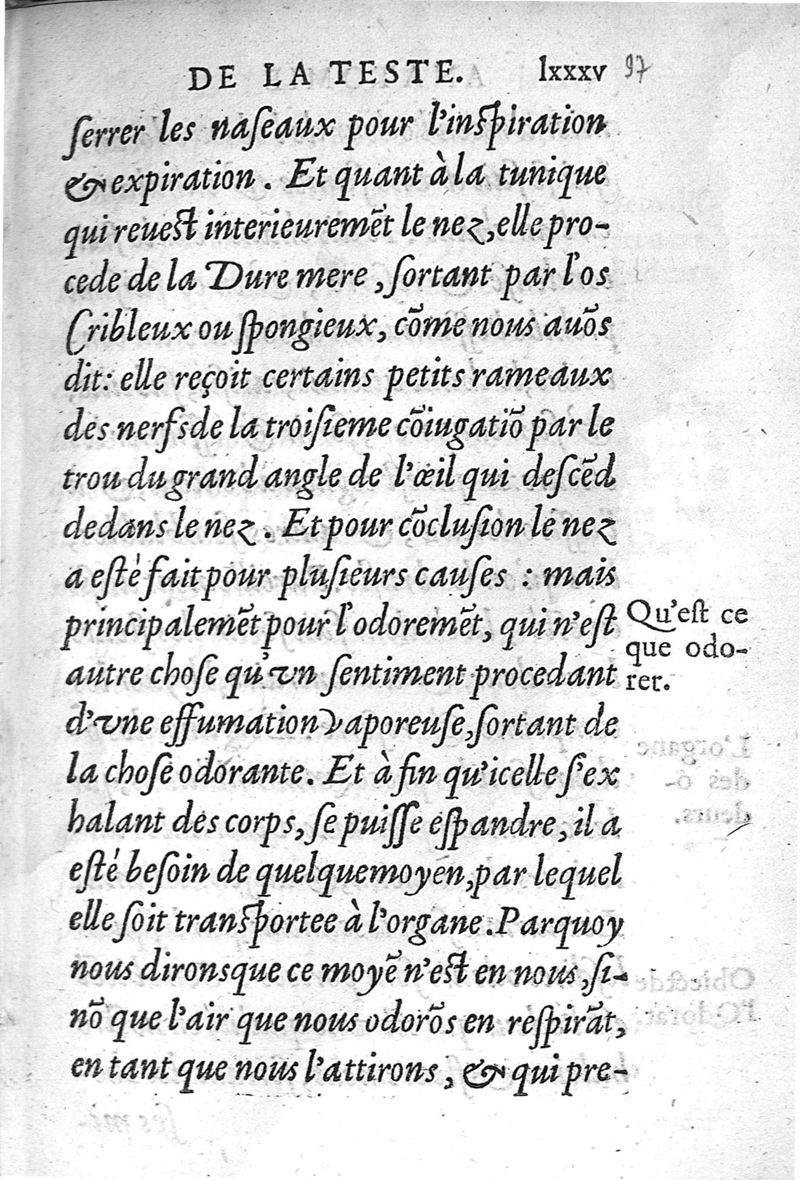 DE LA TESTE. lxxxv 97
ſerrer les naſeaux pour l'inſpiration
& expiration. Et quant à la tunique
qui reueſt interieuremẽt le nez, elle pro-
cede de la Dure mere, ſortant par l'os
Cribleux ou ſpongieux, cõme nous auõs
dit: elle reçoit certains petits rameaux
des nerfs de la troiſieme cõiugatiõ par le
trou du grand angle de l'œil qui deſcẽd
dedans le nez. Et pour cõcluſion le nez
a eſté fait pour pluſieurs cauſes : mais
principalemẽt pour l'odoremẽt, qui n'eſt
autre choſe qu'vn ſentiment procedant
d'vne effumation vaporeuſe, ſortant de
la choſe odorante. Et à fin qu'icelle ſ'ex
halant des corps, ſe puiſſe eſpandre, il a
eſté beſoin de quelque moyen, par lequel
elle ſoit tranſportee à l'organe. Parquoy
nous dirons que ce moyẽ n'eſt en nous, ſi-
nõ que l'air que nous odorõs en reſpirãt,
en tant que nous l'attirons, & qui pre-
Qu'eſt ce
que odo-
rer.